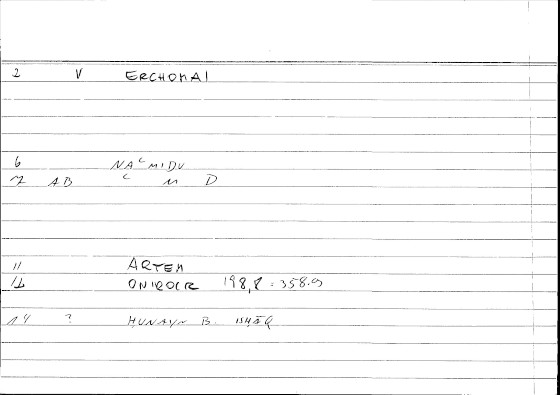 2 V ERCHOMAI
6 NAʿMIDU
7 AB ʿ M D
11 ARTEM
12 ONIROCR 198,8 = 358.9
14 ? HUNAYN B. ISHĀQ